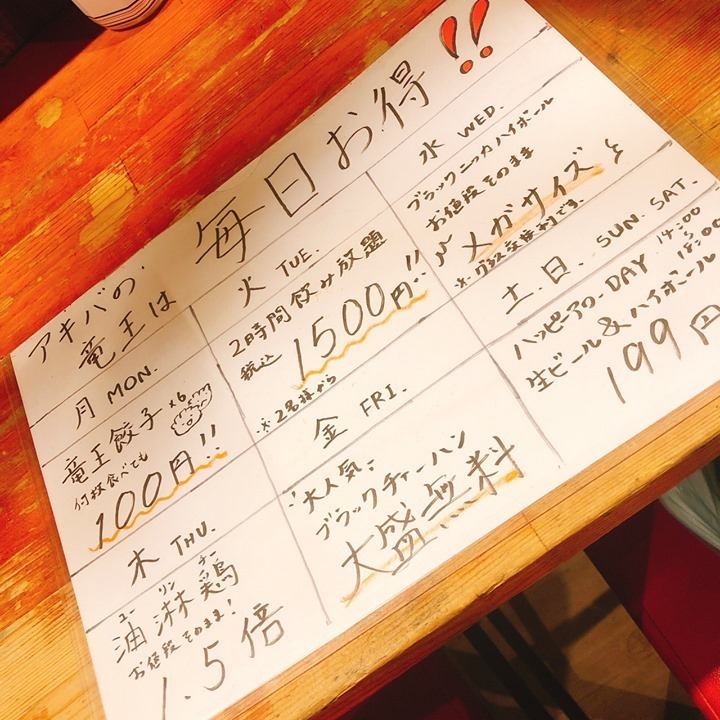 アキバの
竜王は
毎日お得!!
月 MON.
竜王餃子 ×6
何枚食べても
100円!!
火 TUE.
2時間飲み放題
税込 1500円!!
※2名様から
水 WED.
ブラックニッカハイボール
お値段そのまま
メガサイズ
※グラス交換制です。
木 THU.
ユーリンチー
油淋鶏
お値段そのまま!
1.5倍
金 FRI.
大人気
ブラックチャーハン
大盛無料
土.日. SUN. SAT.
ハッピーアワーDAY 14:00
生ビール&ハイボール
199円